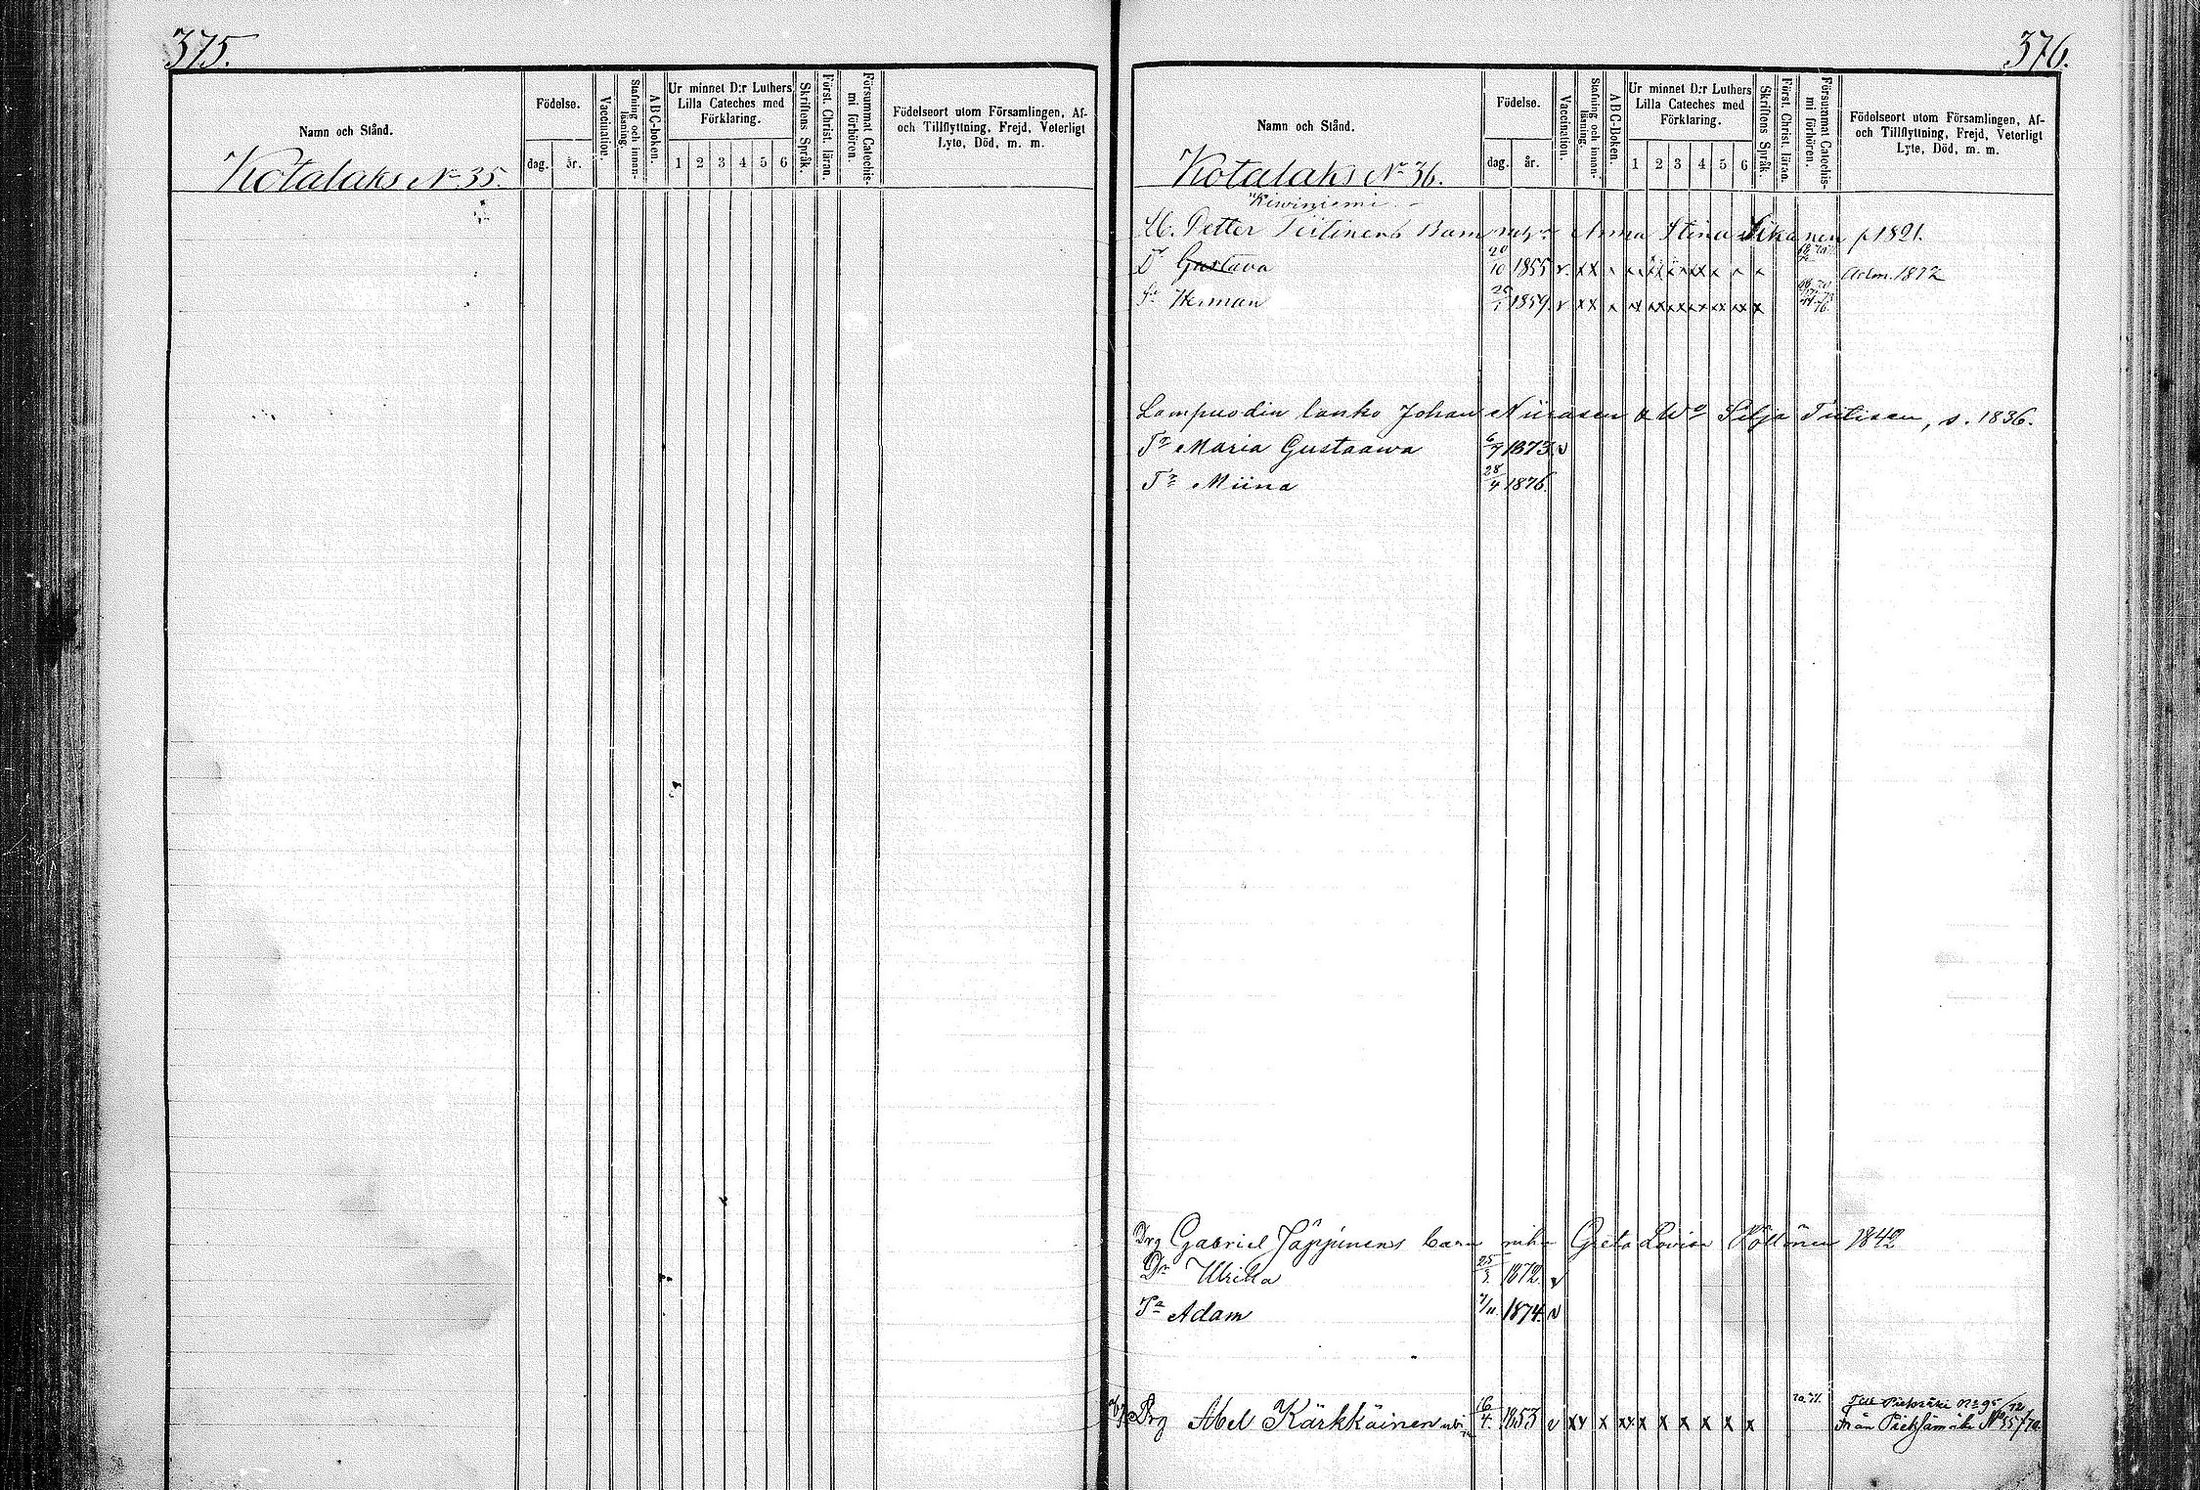 375.
Namn och Stånd.
Födelse.
dag. år.
Vaccination.
Stafning och innan-
läsning.
A B C-boken.
Ur minnet D:r Luthers
Lilla Cateches med
Förklaring.
1 2 3 4 5 6
Skriftens Språk.
Först. Christ. läran.
Försummat Catechis-
mi förhören.
Födelseort utom Församlingen, Af-
och Tillflyttning, Frejd, Veterligt
Lyte, Död, m. m.
Kotalaks No 35.
376.
Namn och Stånd.
Födelse.
dag. år.
Vaccination.
Stafning och innan-
läsning.
A B C-Boken.
Ur minnet D:r Luthers
Lilla Cateches med
Förklaring.
1 2 3 4 5 6
Skriftens Språk.
Först. Christ. läran.
Försummat Catechis-
mi förhören.
Födelseort utom Församlingen, Af-
och Tillflyttning, Frejd, Veterligt
Lyte, Död, m. m.
Kotalaks No 36.
Kiwiniemi
Petter Tiitinens Barn Anna Stina Sikanen 1821.
Dr Gustava 20/10 1855 v xx x x x x x x Adm. 1872
Sn Herman 1859 v xx x x x x x x x x
Lampuodin lanko Johan Niirasen & Wo Silja Tiitisen, s. 1836.
Tr Maria Gustaawa 6/9 1873 v
Tr Miina 28/4 1876.
Drg Gabriel Jäppinens barn Greta Lovisa Pöllönen 1842
Dr Ulrika 25/3 1872. v
Adam 7/11 1874. v
Drg Abel Kärkkäinen 16/4 1853 v xx x xx x x x x x x 70. 71.
Från Pieksämäki No 55/70